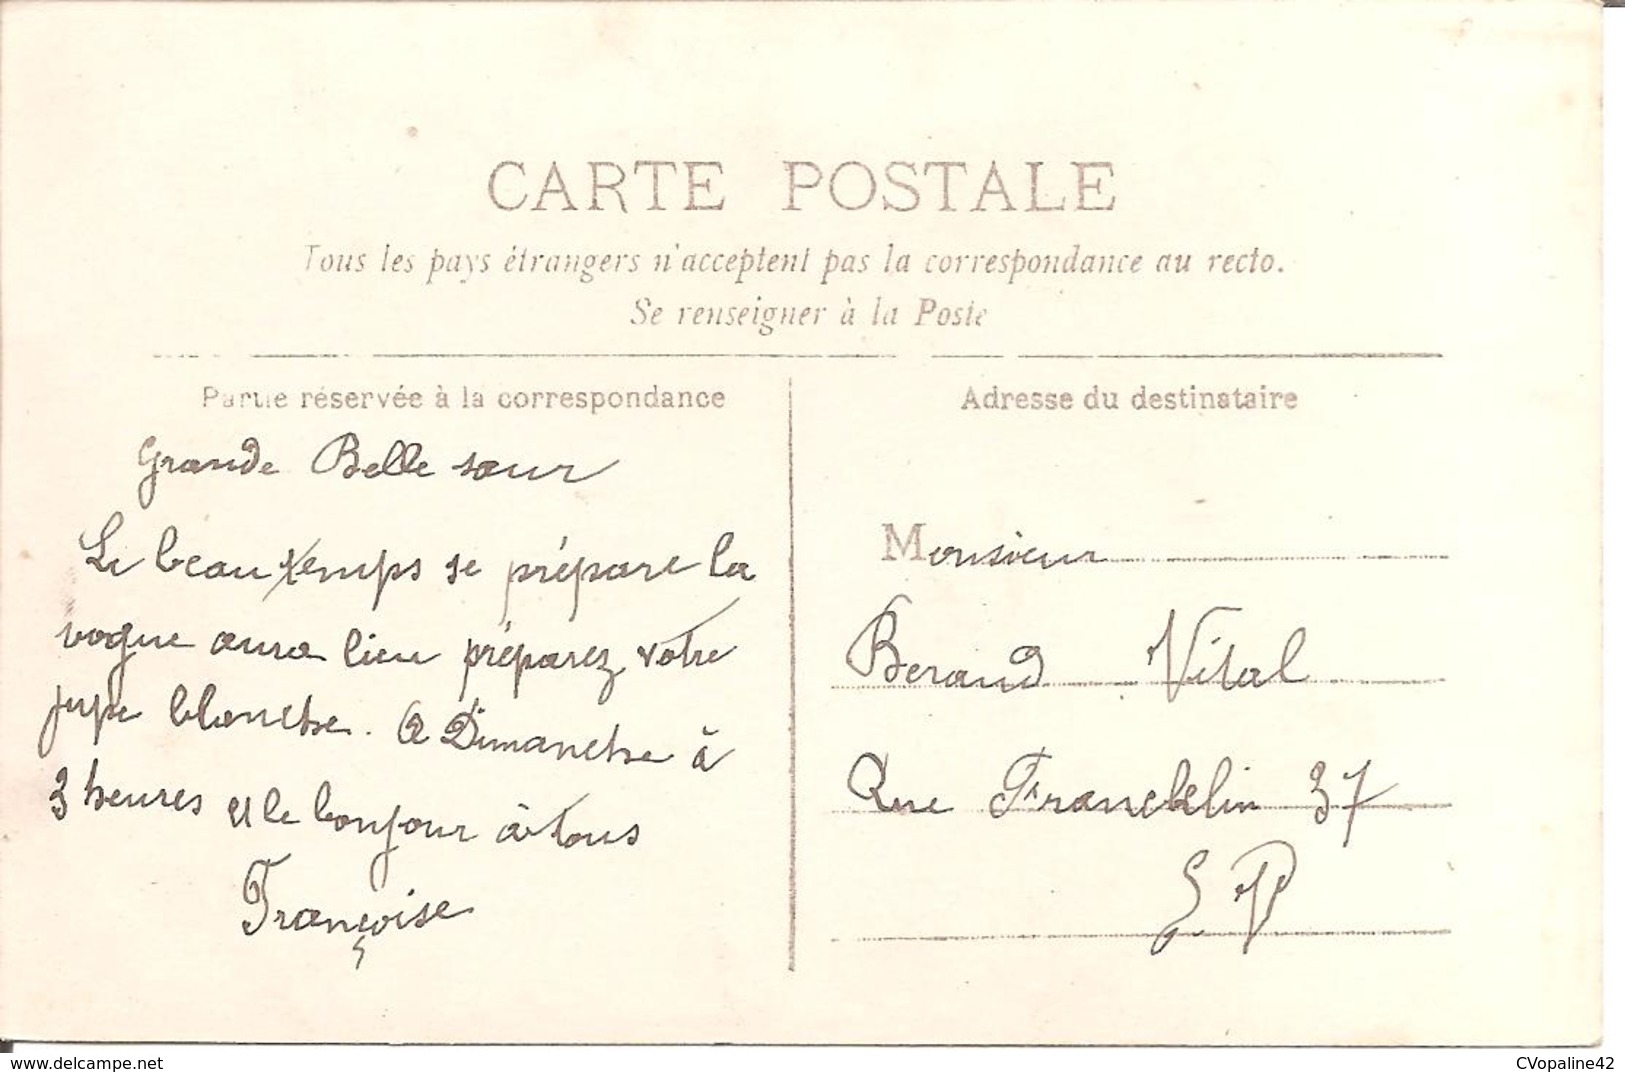 CARTE POSTALE
Tous les pays étrangers n'acceptent pas la correspondance au recto.
Se renseigner à la Poste
Partie réservée à la correspondance
Grande Belle sœur
Le beau temps se prépare la
vogue aura lieu préparez votre
jupe blanche. A Dimanche à
3 heures et le bonjour à tous
Françoise
Adresse du destinataire
Monsieur
Beraud Vital
Rue Francklin 37
E.V
www.delcampe.net
CVopaline42